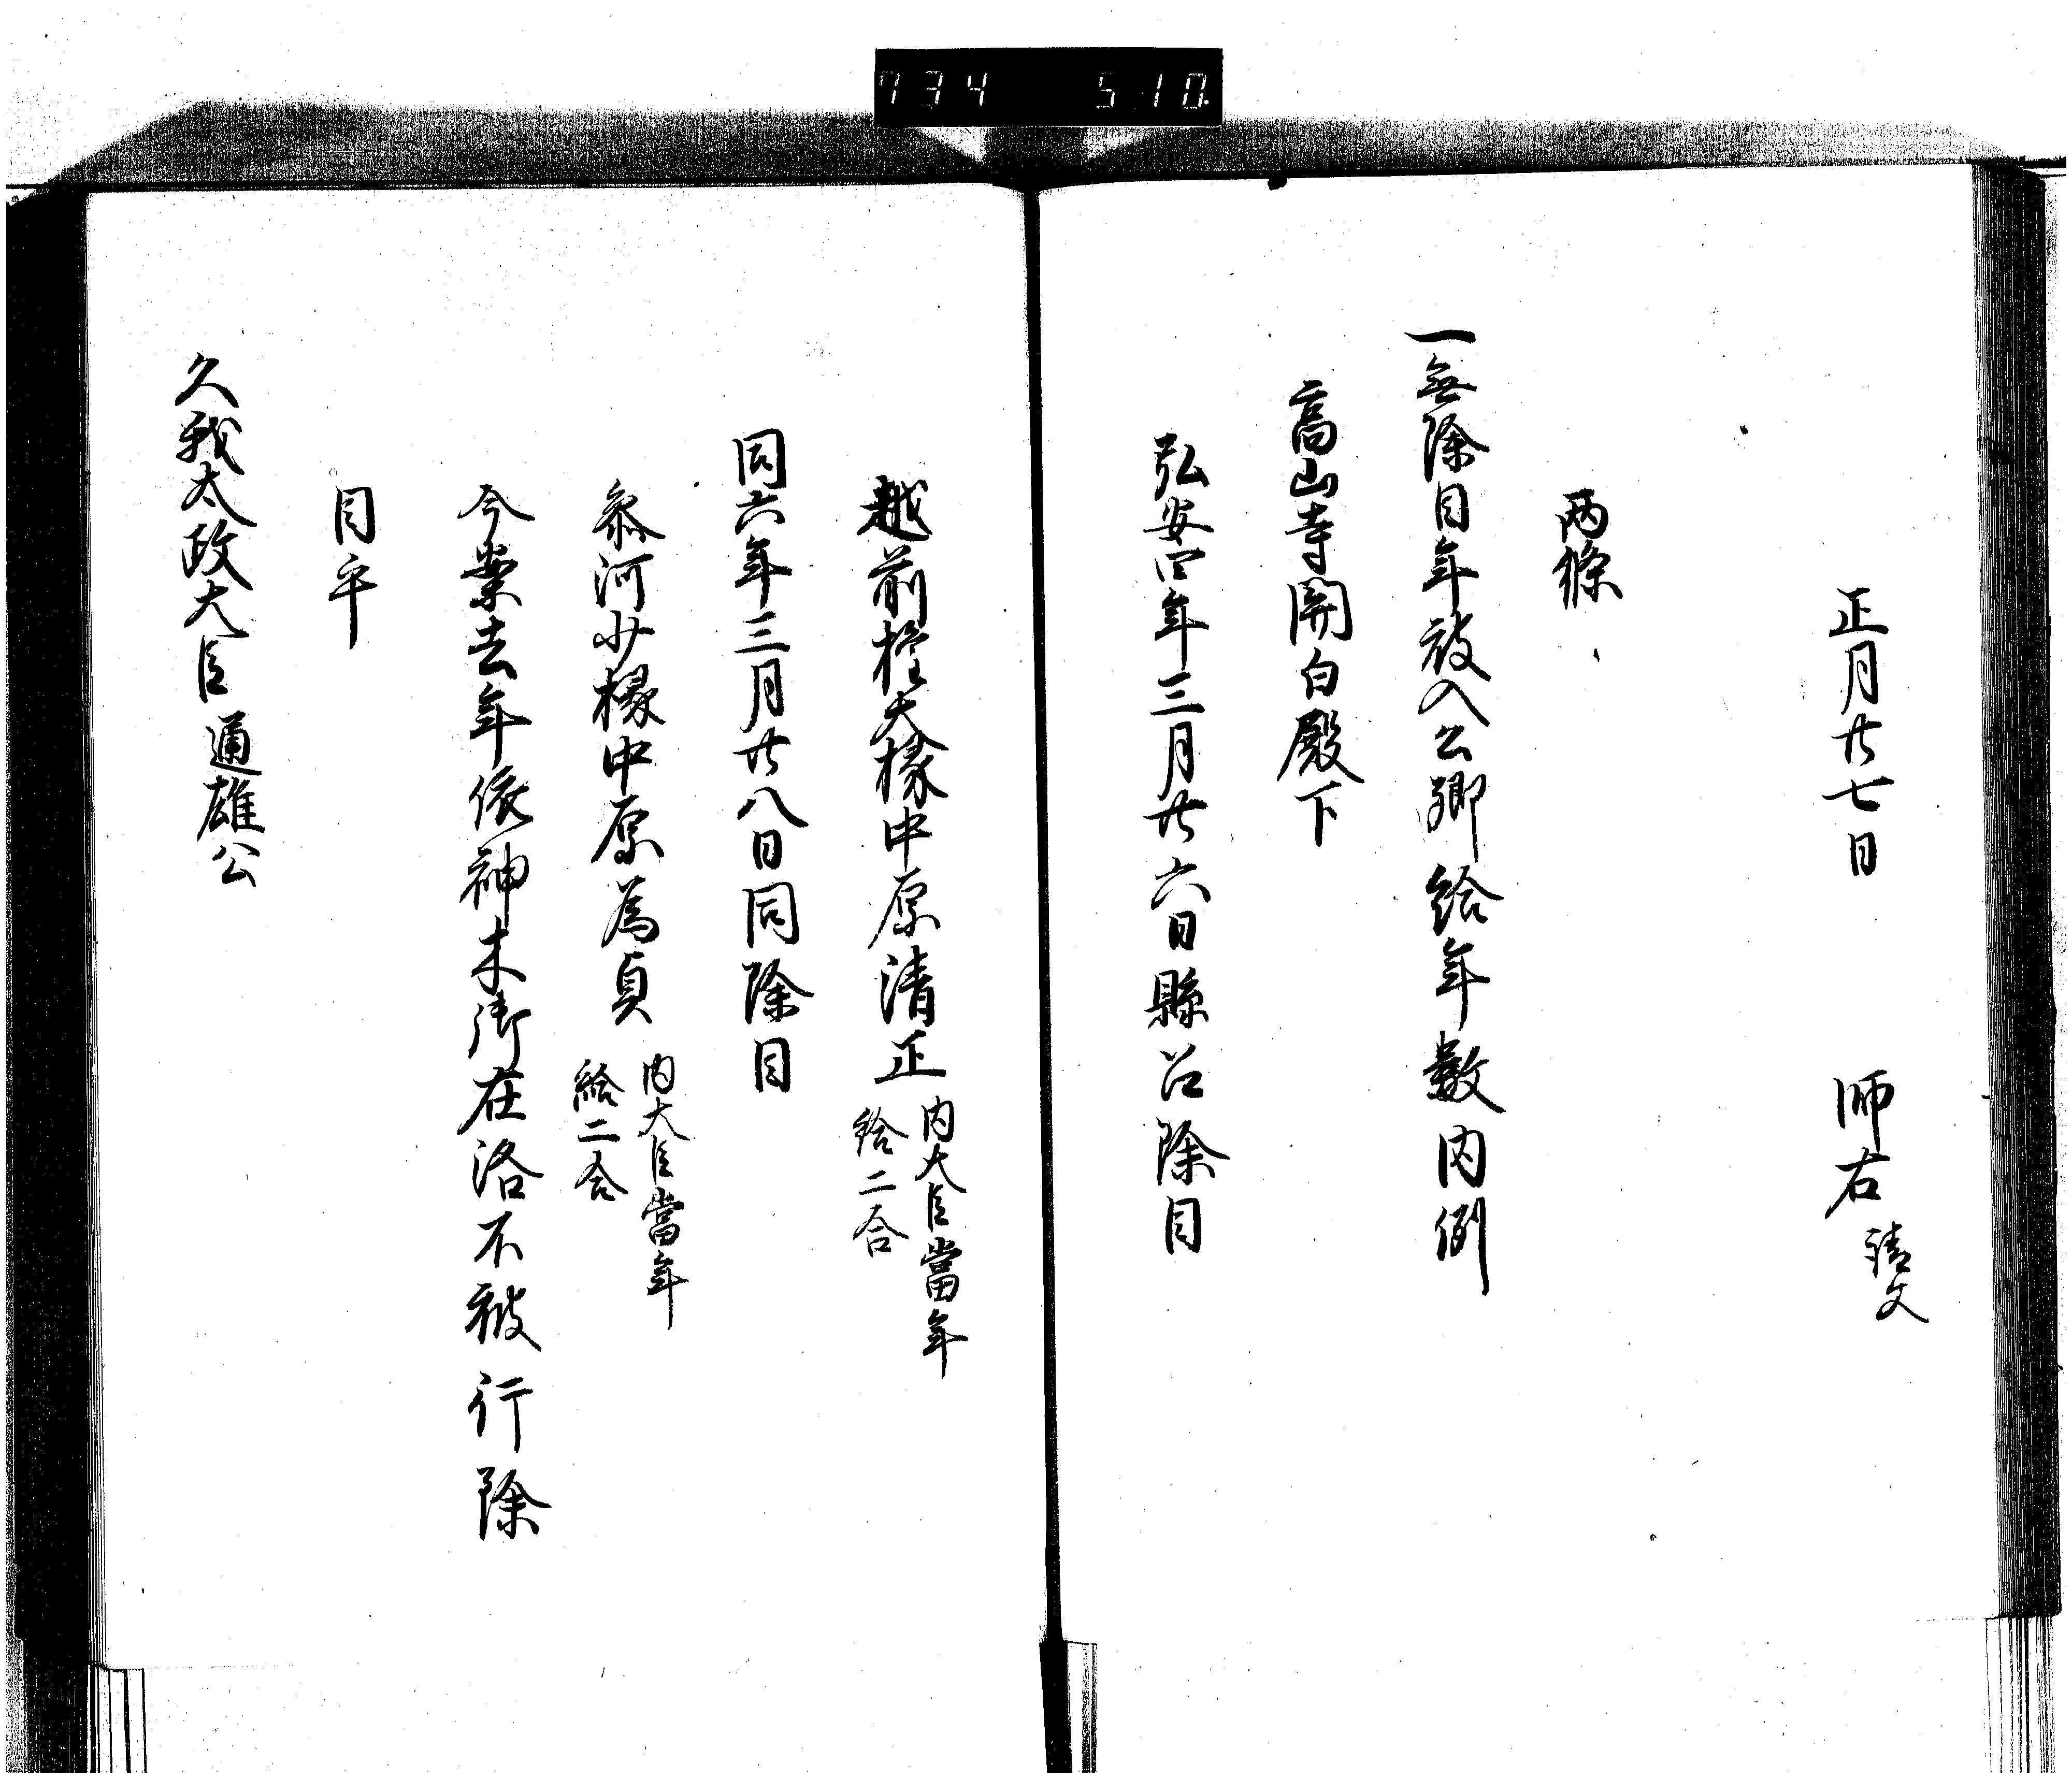 734 510.
正月廿七日 師右請文
兩條
一無除目年被入公卿給年數内例
高山寺關白殿下
弘安四年三月廿六日縣召除目
越前權大掾中原清正内大臣當年
給二合
同六年三月廿八日同除目
參河少掾中原為貞内大臣當年
給二合
今案去年依神木御在洛不被行除
目乎
久我太政大臣通雄公